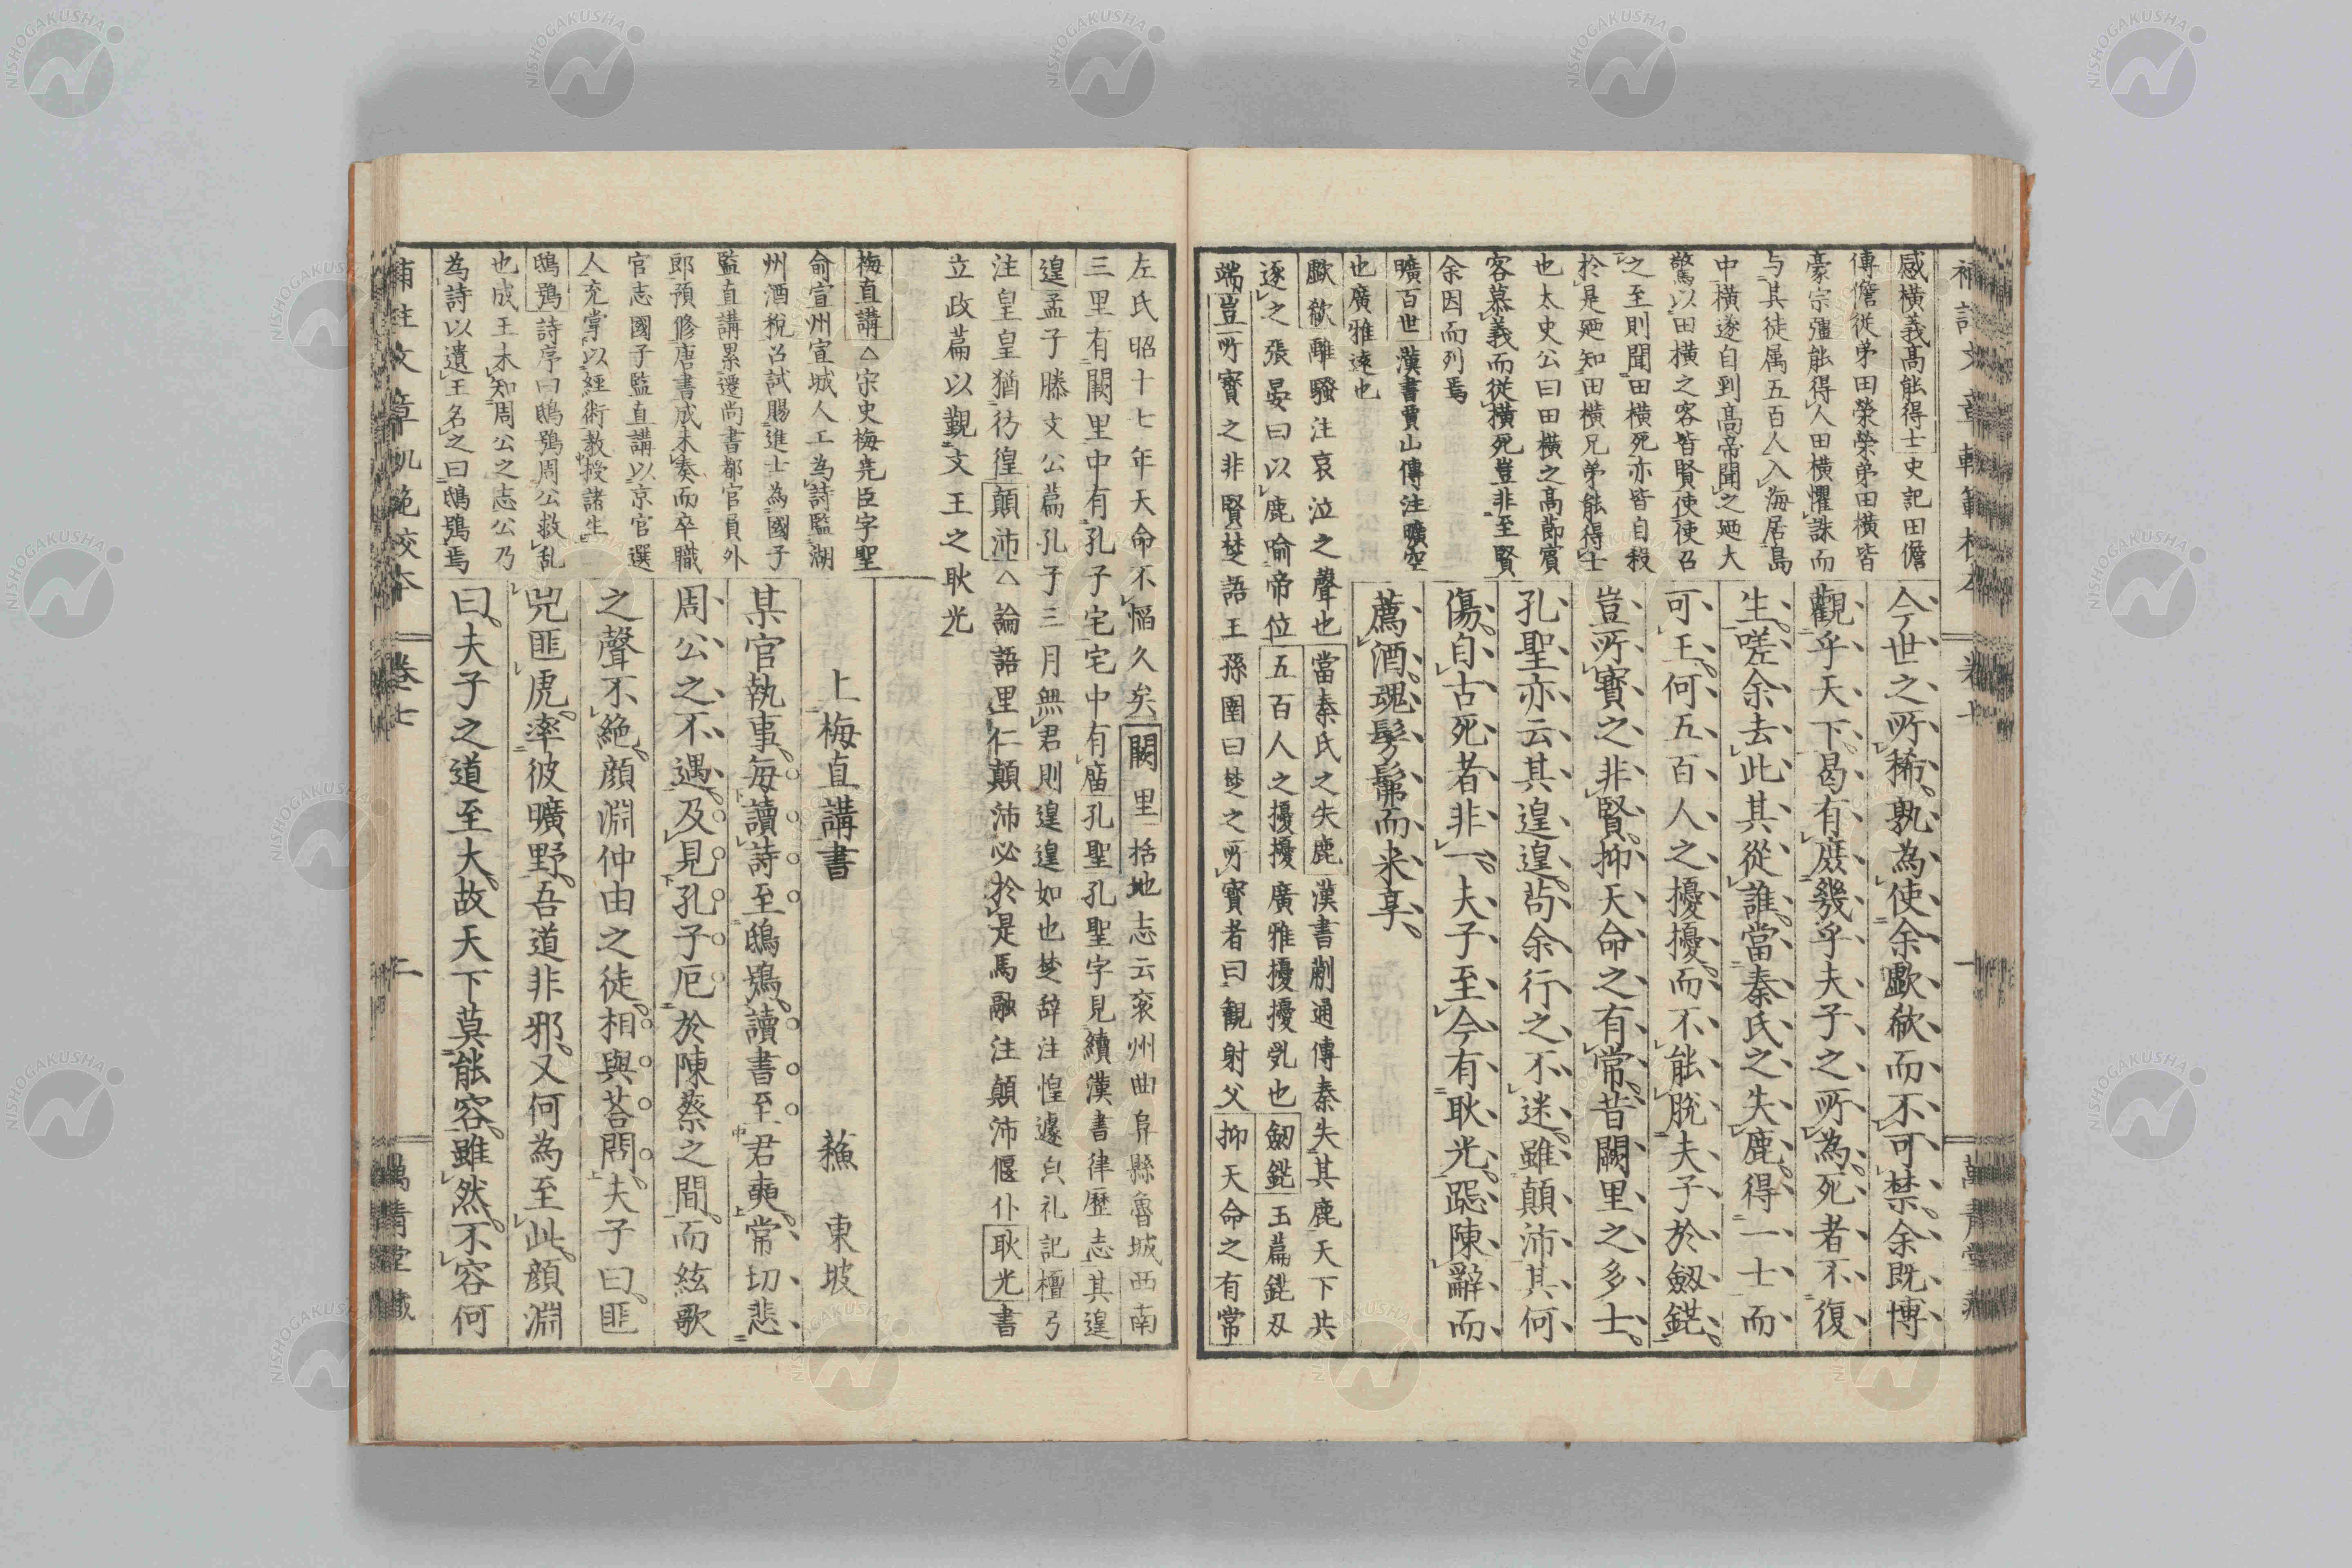 補註文章軌範校本 卷七 一 萬青堂藏
感橫義高能得士史記田儋
傳儋從弟田榮榮弟田橫皆
豪宗彊能得人田橫懼誅而
与其徒属五百人入海居島
中橫遂自剄高帝聞之廼大
驚以田橫之客皆賢使使召
之至則聞田橫死亦皆自殺
於是廼知田橫兄弟能得士
也太史公曰田橫之高節賓
客慕義而從橫死豈非至賢
余因而列焉
曠百世漢書賈山傳注曠空
也廣雅遠也
今世之所稀孰為使余歔欷而不可禁余既博
觀乎天下曷有庶幾乎夫子之所為死者不復
生嗟余去此其從誰當秦氏之失鹿得一士而
可王何五百人之擾擾而不能脫夫子於劔鋩
豈所寶之非賢抑天命之有常昔闕里之多士
孔聖亦云其遑遑茍余行之不迷雖顛沛其何
傷自古死者非一夫子至今有耿光跽陳辭而
薦酒魂髣髴而来享
歔欷離騷注哀泣之聲也當秦氏之失鹿漢書蒯通傳秦失其鹿天下共
逐之張晏曰以鹿喻帝位五百人之擾擾廣雅擾擾乱也劔鋩玉篇鋩刃
端豈所寶之非賢楚語王孫圉曰楚之所寶者曰觀射父抑天命之有常
左氏昭十七年天命不慆久矣闕里括地志云兖州曲阜縣魯城西南
三里有闕里中有孔子宅宅中有庿孔聖孔聖字見續漢書律歷志其遑
遑孟子滕文公篇孔子三月無君則遑遑如也楚辞注惶遽皃礼記檀弓
注皇皇猶彷徨顛沛△論語里仁顛沛必於是馬融注顛沛偃仆耿光書
立政篇以觀文王之耿光
梅直講△宋史梅堯臣字聖
俞宣州宣城人工為詩監湖
州酒稅召試賜進士為國子
監直講累遷尚書都官員外
郎預修唐書成未奏而卒職
官志國子監直講以京官選
人充掌以經術教授諸生
鴟鴞詩序曰鴟鴞周公救乱
也成王未知周公之志公乃
為詩以遺王名之曰鴟鴞焉
上梅直講書 蘓東坡
某官執事每讀詩至鴟鴞讀書至君奭常切悲
周公之不遇及見孔子厄於陳蔡之間而絃歌
之聲不絶顔淵仲由之徒相與荅問夫子曰匪
兕匪虎率彼曠野吾道非邪又何為至此顔淵
曰夫子之道至大故天下莫能容雖然不容何
補註文章軌範校本 卷七 二 萬青堂藏